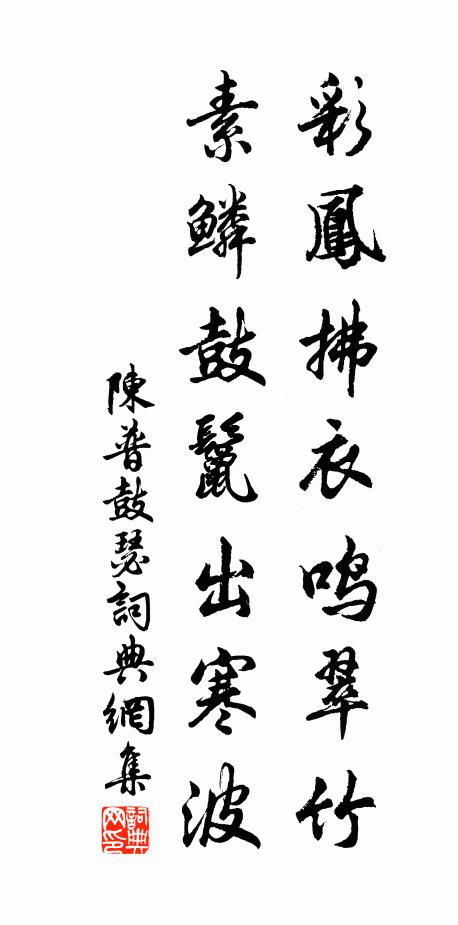 彩鳳拂衣鸣翠竹
素鱗鼓鬣出寒波
陳普鼓瑟詞典網集
詞典网印